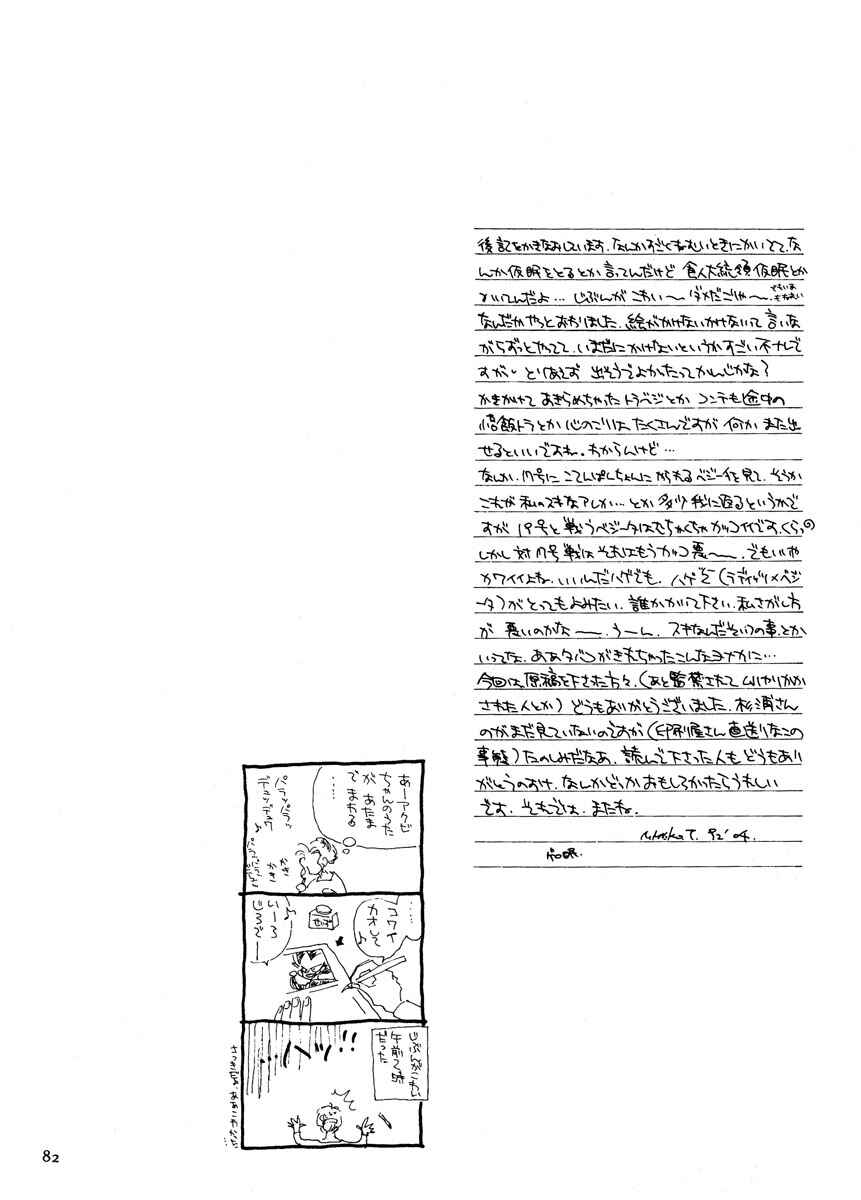 後記をかきなおしています。なんかすごくねむいときにかいてて、な
んか仮眠をとるとか言ってんだけど 食人大統領仮眠とか
かいてんだよ… じぶんがこわい〜 ダメだこりゃ〜
なんだかやっとおわりました。絵がかけないかけないって言いな
がらずっとやってて、いまだにかけないというかすごい不ナレで
すが、とりあえず 出そうでよかったってかんじかな？
かきかけて あきらめちゃった トラベジとか コンテも途中の
悟飯トラとか 心のこりは たくさんですが 何か また出
せるといいですね。わからんけど…
なんか、17号に こてんぱんちょんに やられるベジータを見て、そうか
これが私のスキなアレか… とか 多少我に返るというかで
すが 19号と戦うベジータはむちゃくちゃカッコイイです。くらっ
しかし対17号戦は それはもうカッコ悪〜。でもいいや
カワイイよね。いいんだハゲでも。ハゲベ（ラディッツ×ベジ
ータ）がとってもよみたい。誰かかいて下さい。私さがし方
が 悪いのかな〜。うーん。スキなんだそいつの事。とか
いってな。ああタバコがきれちゃったこんなヨナカに…
今回は、原稿を下された方々、（あと監禁されて ムリヤリかか
された人とか）どうもありがとうございました。杉浦さん
のがまだ見ていないのですが（印刷屋さん直送りなこの
事態）たのしみだなあ。読んで下さった人も どうもあり
がとうのおけ。なんかどっか おもしろかったらうれしい
です。それでは、またね。
92' 04.
あーアクビ
ちゃんのうた
が あたま
で まわる
……
……
コワイ
カオして
♪
いーろ
じろでー
じぶんで
午前2時
だった
…ハッ!!
82